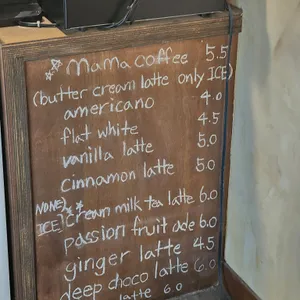 * Mama coffee 5.5
(butter cream latte only ICE)
americano 4.0
flat white 4.5
vanilla latte 5.0
cinnamon latte 5.0
NONE) **
ICE) Cream milk tea latte 6.0
passion fruit ade 6.0
ginger latte 4.5
deep choco latte 6.0
latte 6.0